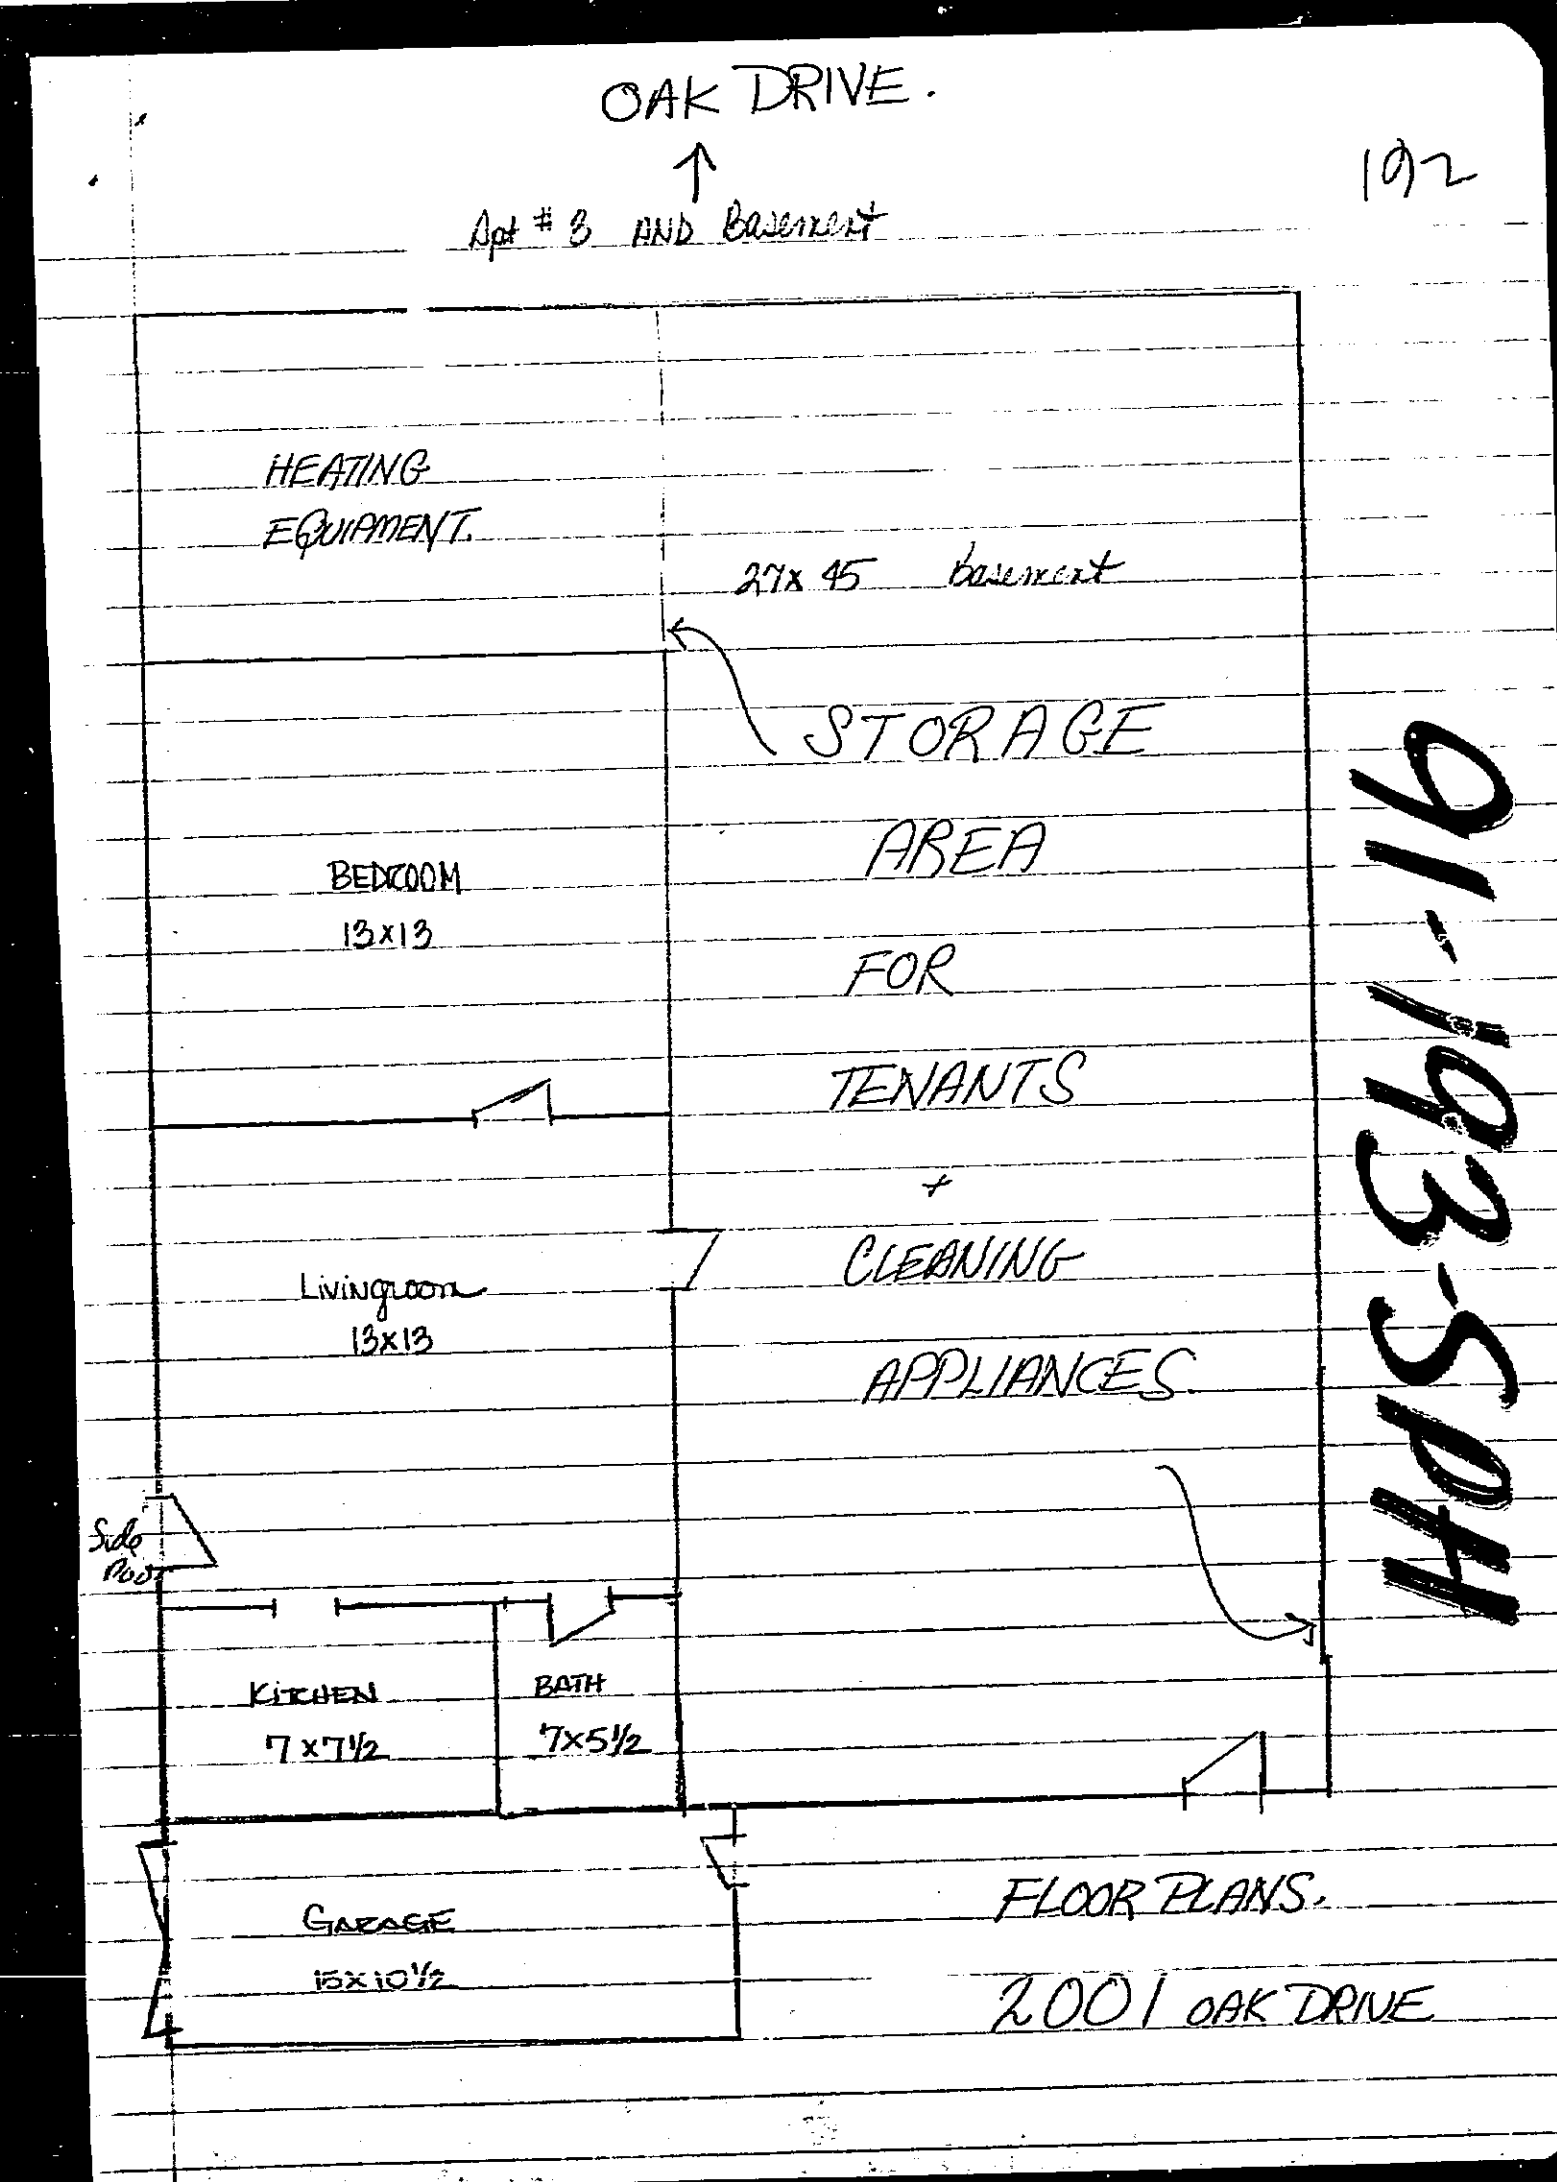 OAK DRIVE.
↑
192
Apt # 3 AND Basement
HEATING
EQUIPMENT.
27 x 45 Basement
STORAGE
AREA
FOR
TENANTS
+
CLEANING
APPLIANCES.
BEDROOM
13x13
Livingroom
13x13
Side
Door
KITCHEN
7 x 7 1/2
BATH
7x5 1/2
GARAGE
15x10 1/2
FLOOR PLANS.
2001 OAK DRIVE
91-193-SPH